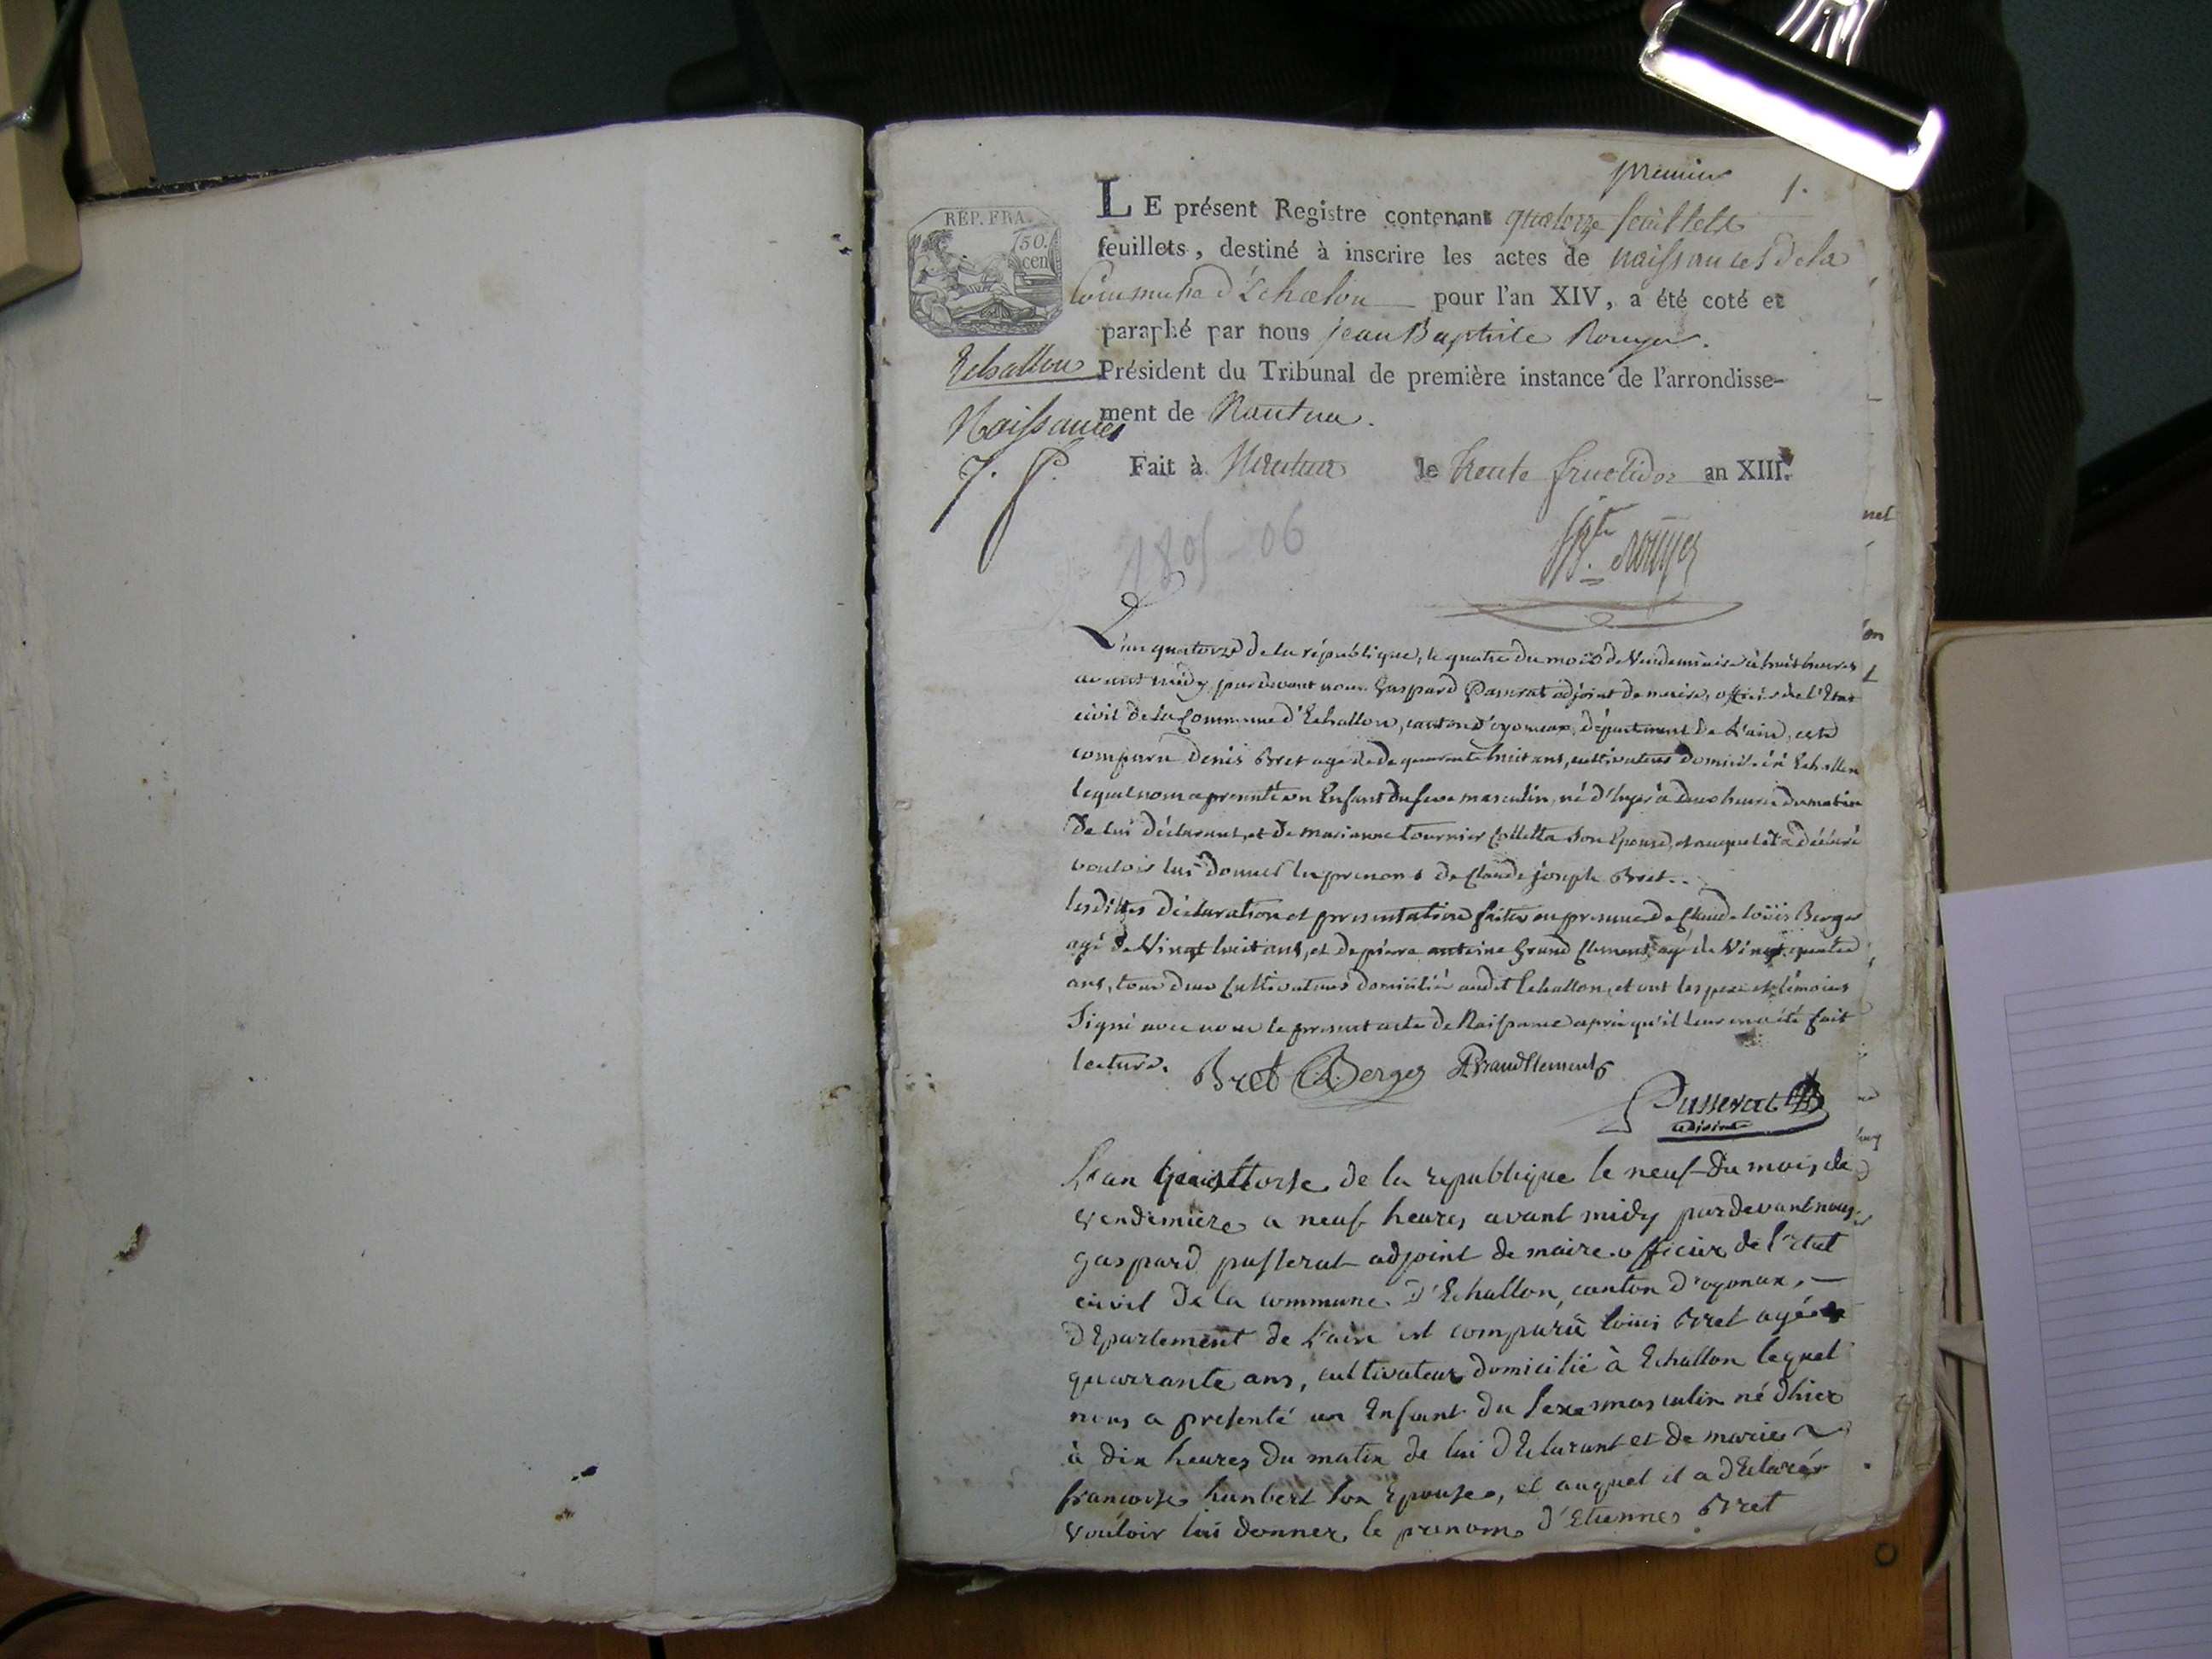 premier 1.
RÉP. FRA.
50.
cen
LE présent Registre contenant quatorze feuillets
feuillets, destiné à inscrire les actes de naissances de la
Commune d'Echalon pour l'an XIV, a été coté et
paraphé par nous Jean Baptiste Rouyer.
Echallon
Président du Tribunal de première instance de l'arrondisse-
ment de Nantua.
Naissances
Fait à Nantua le trente fructidor an XIII.
1805-06
JBte Rouyer
L'an quatorze de la république, le quatre du mois de Vendemiaire à huit heures
avant midy, pardevant nous Gaspard Passerat adjoint de maire, officier de l'Etat
civil de la Commune d'Echallon, canton d'oyonnax, département de L'ain, est
comparu Denis Bret agé de de quarante huit ans, cultivateur domicilié à Echallon
lequel nous a presenté un Enfant du sexe masculin, né d'hyer à deux heures du matin
de lui déclarant, et de marianne tournier Colletta son Epouse, et auquel il a déclaré
vouloir lui donner les prenoms de Claude joseph Bret..
lesdittes déclaration et presentation faites en presence de Claude loüis Berger
agé de Vingt huit ans, et de pierre antoine Grand Clement agé de Vingt quatre
ans, tous deux Cultivateurs domiciliés audit Echallon, et ont les pere et témoins
Signé avec nous le present acte de Naissance après qu'il leur en a été fait
lecture. Bret Berger Grandclement
Passerat
adjoint
L'an quattorse de la republique le neuf du mois de
vendemiere a neuf heures avant midy pardevant nous
gaspard passerat adjoint de maire officier de l'etat
civil de la commune d'Echallon, canton d'oyonax,
dEpartement de L'ain est comparü loüis Bret agé de
quarrante ans, cultivateur domicilié à Echallon lequel
nous a presenté un Enfant du sexe masculin né dhier
à dix heures du matin de lui dEclarant et de marie
francoise humbert son Epouse, et auquel il a dEclarér
vouloir lui donner, le prenom d'Etienne Bret